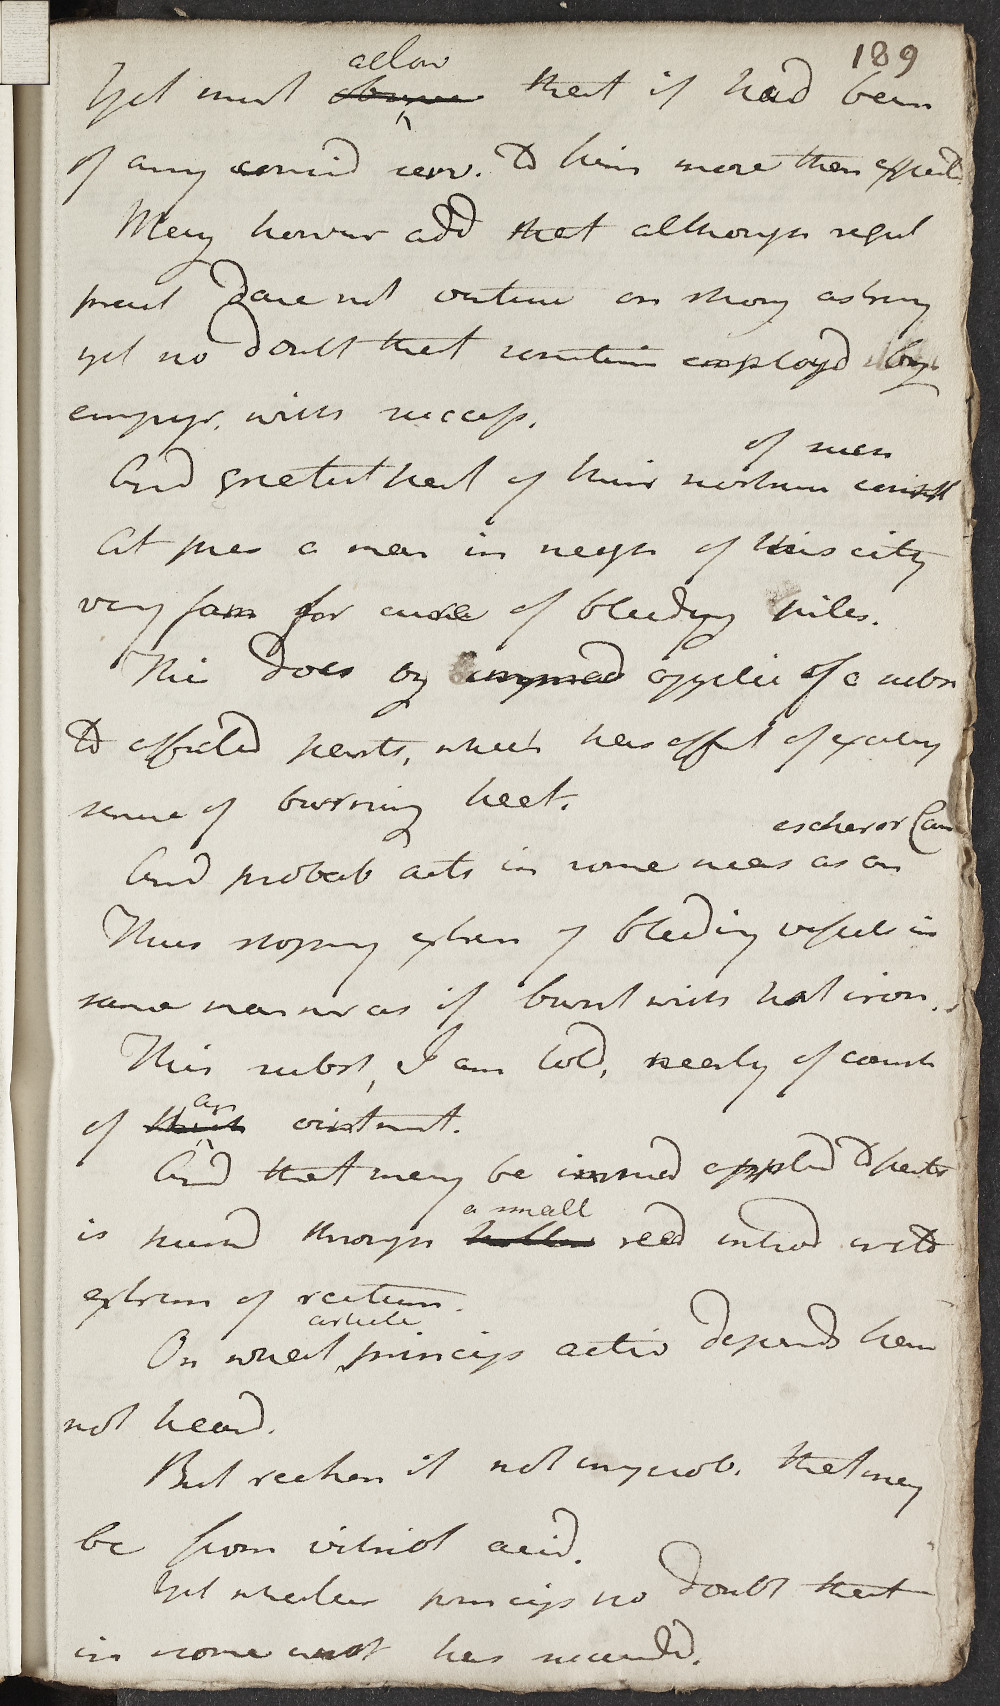 189
allow
Yet must that if had been
of any consid serv. to him more then expectd
May howevr add that althougn regul
pract dare not ventur on strong astring
yet no doubt that sometim employd by
empyr. with success.
of men
And greatest heat of their nostrum consist
At pres a man in neigh of this city
very fam for cure of bleedyng piles.
This does by immed applic of a subs
to affected parts, which has effect of excitng
sense of burning heat.
escharor Caus
And probab acts in some meas as an
Thus stopping extrem of bleeding vessels in
same mannr as if burnt with hot iron.
This subst, I am told, nearly of consis
of an ointment.
And that may be immed appled to parts
is passd through a small reed introd into
extrem of rectum.
article
On what princip actio depends have
not heard.
But reckon it not improb. that may
be from vitriol acid.
Yet whatevr princip no doubt that
in some inst has succeedd.